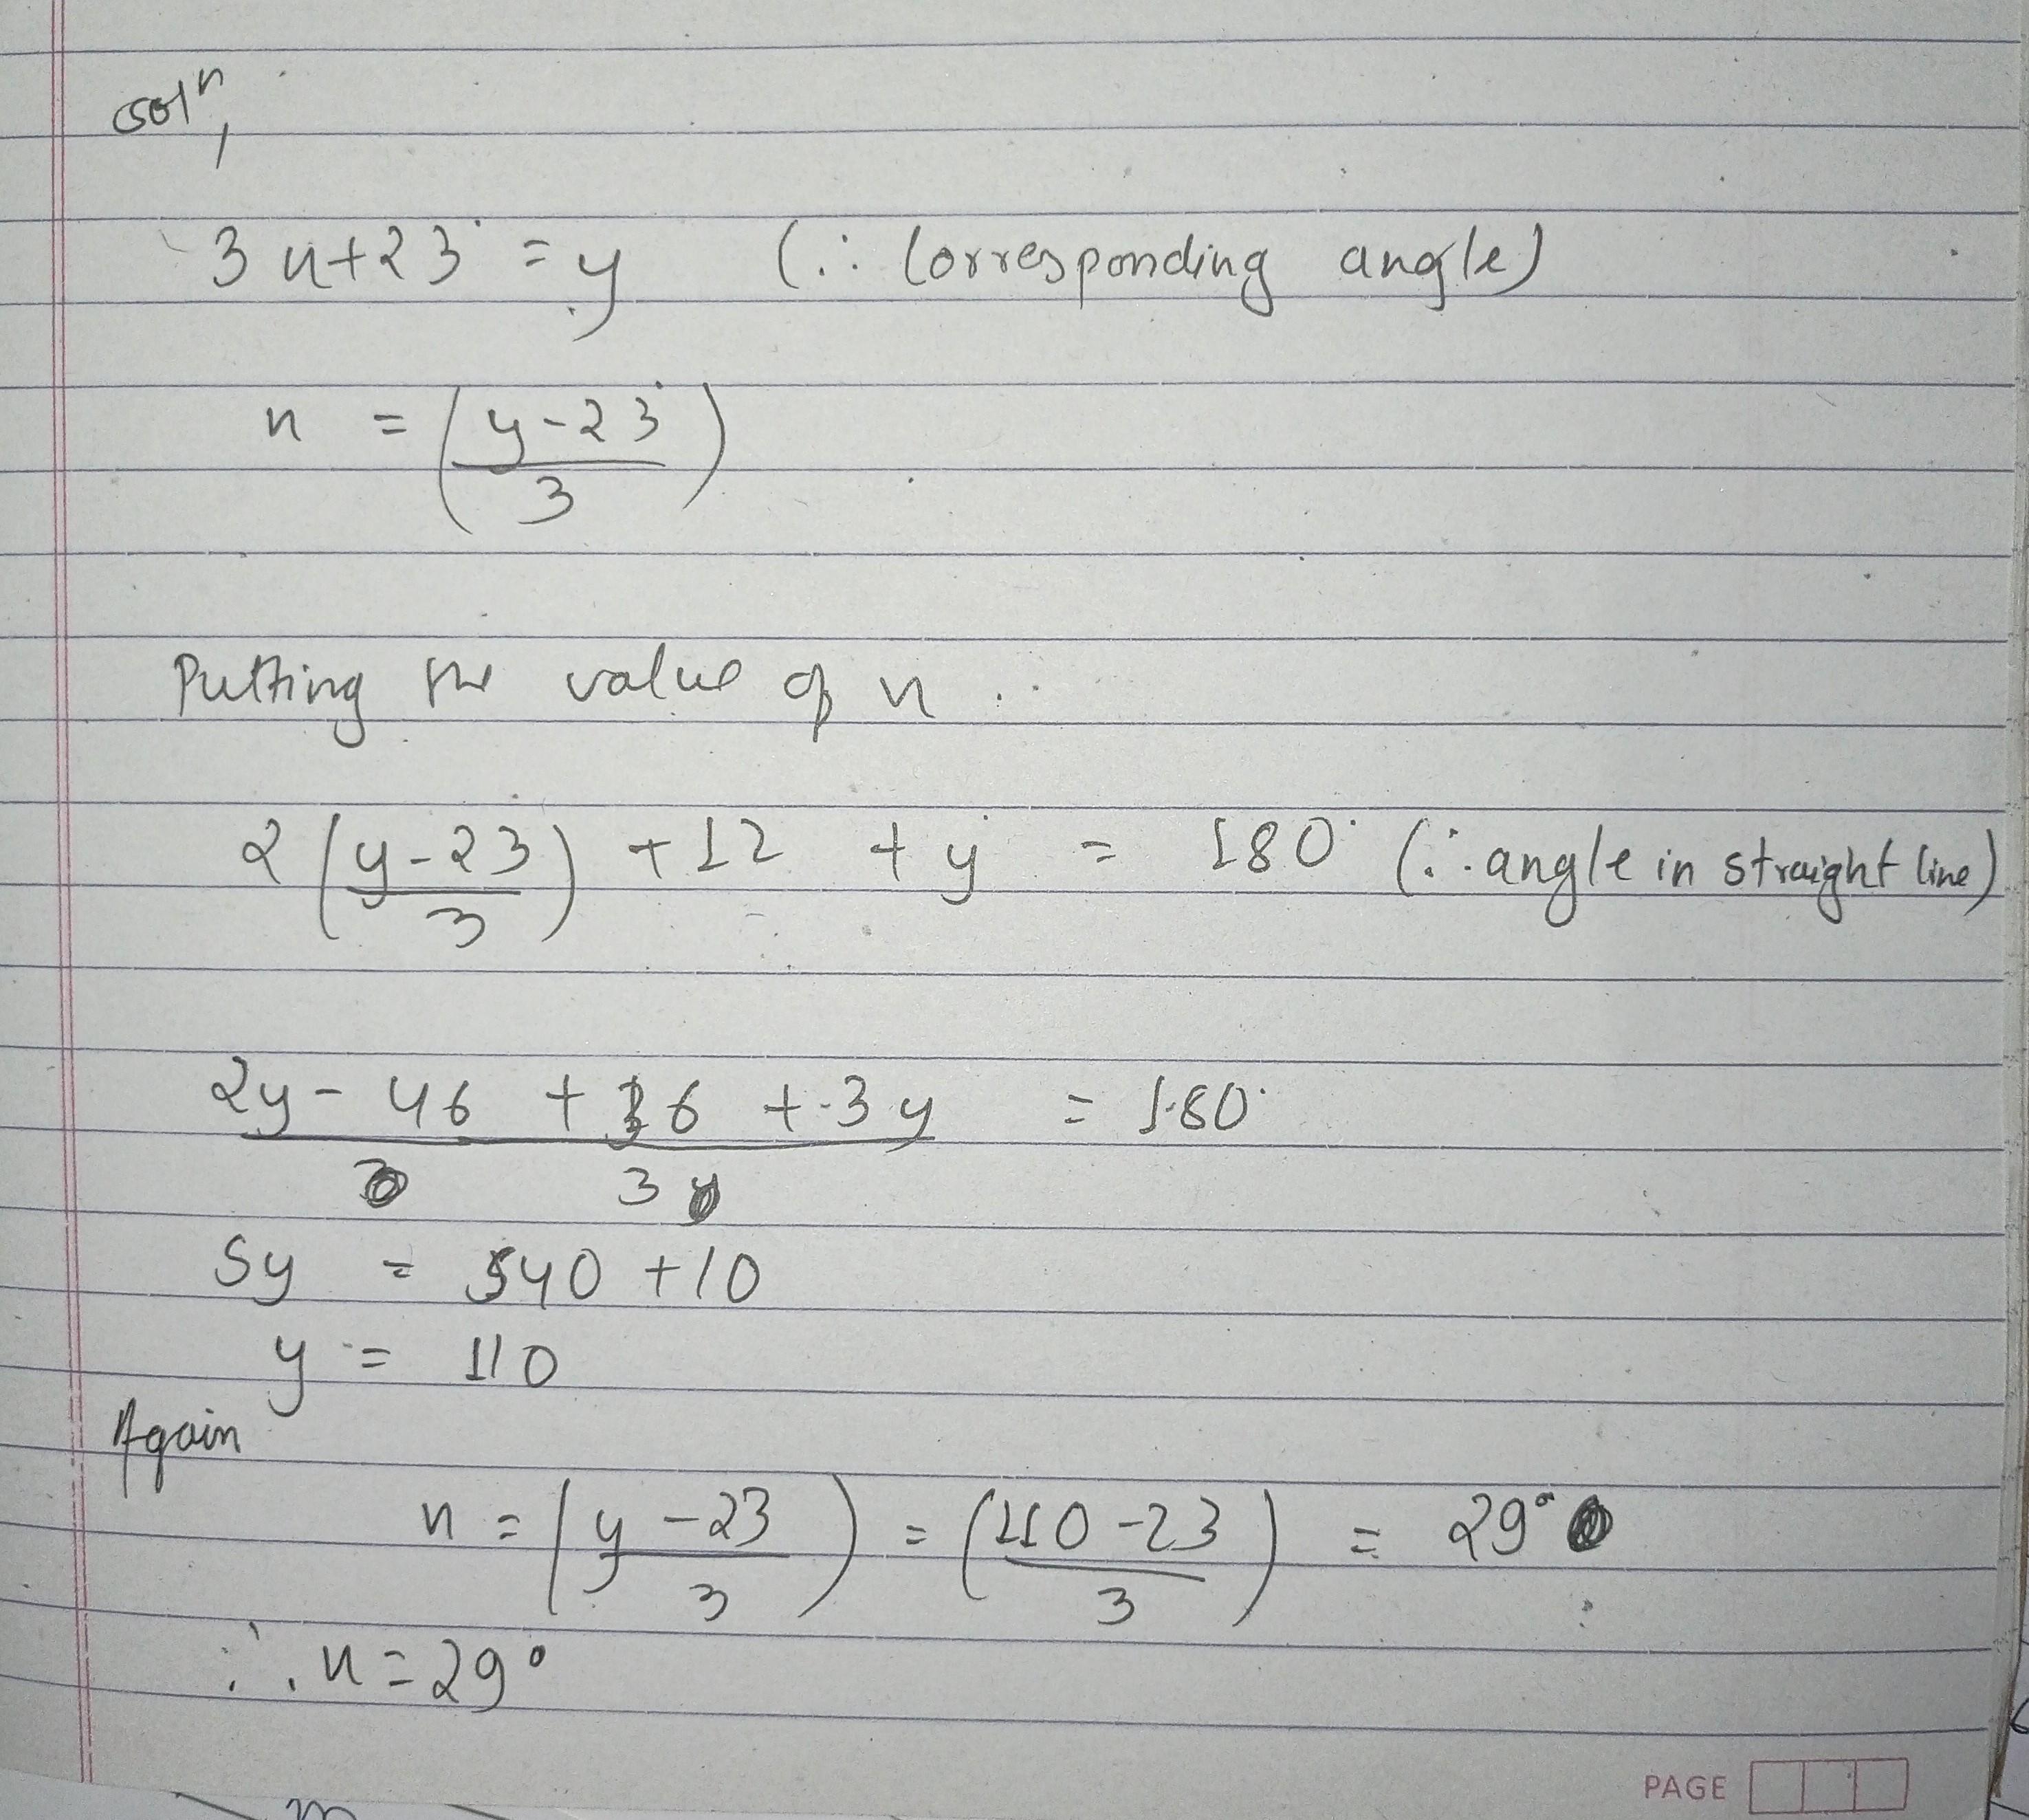 solⁿ,
3x+23° = y (∵ Corresponding angle)
x = (y-23°/3)
Putting the value of x.
2(y-23/3) +12 + y = 180° (∵ angle in straight line)
2y - 46 + 36 + 3y / 3 = 180°
5y = 540 + 10
y = 110
Again
x = (y-23/3) = (110-23/3) = 29°
∴ x = 29°
PAGE